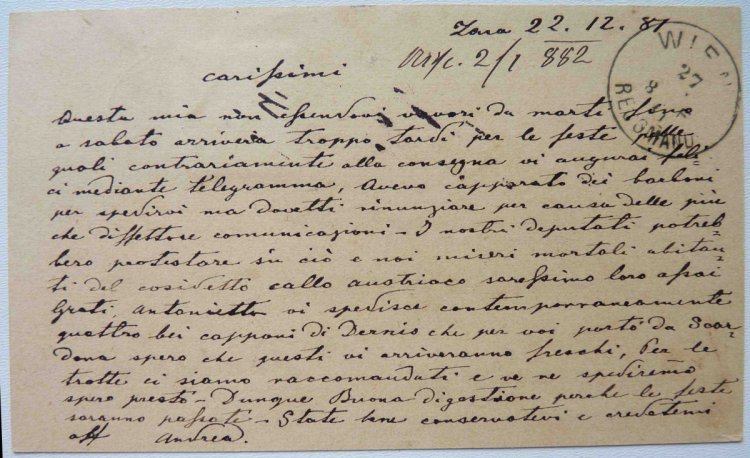 Zara 22.12.81
Risc. 2/1 882
WIEN
27
8
carissimi
Questa mia non essendovi vapori da marti fino
a sabato arriverà troppo tardi per le feste pelle
quali contrariamente alla consegna vi augurai feli-
ci mediante telegramma, Avevo capparato dei barboni
per spedirvi ma dovetti rinunziare per causa delle più
che diffettose comunicazioni - I nostri deputati potreb-
bero protestare su ciò e noi miseri mortali abitan-
ti del cosidetto callo austriaco saressimo loro assai
Grati, Antonietta vi spedisce contemporraneamente
quattro bei capponi di Dernis che per voi portò da Scar-
dona spero che questi vi arriveranno freschi, Per le
trotte ci siamo raccomandati e ve ne spediremo
spero presto - Dunque Buona digestione perche le feste
saranno passate - State bene conservatevi e credetemi
aff Andrea.